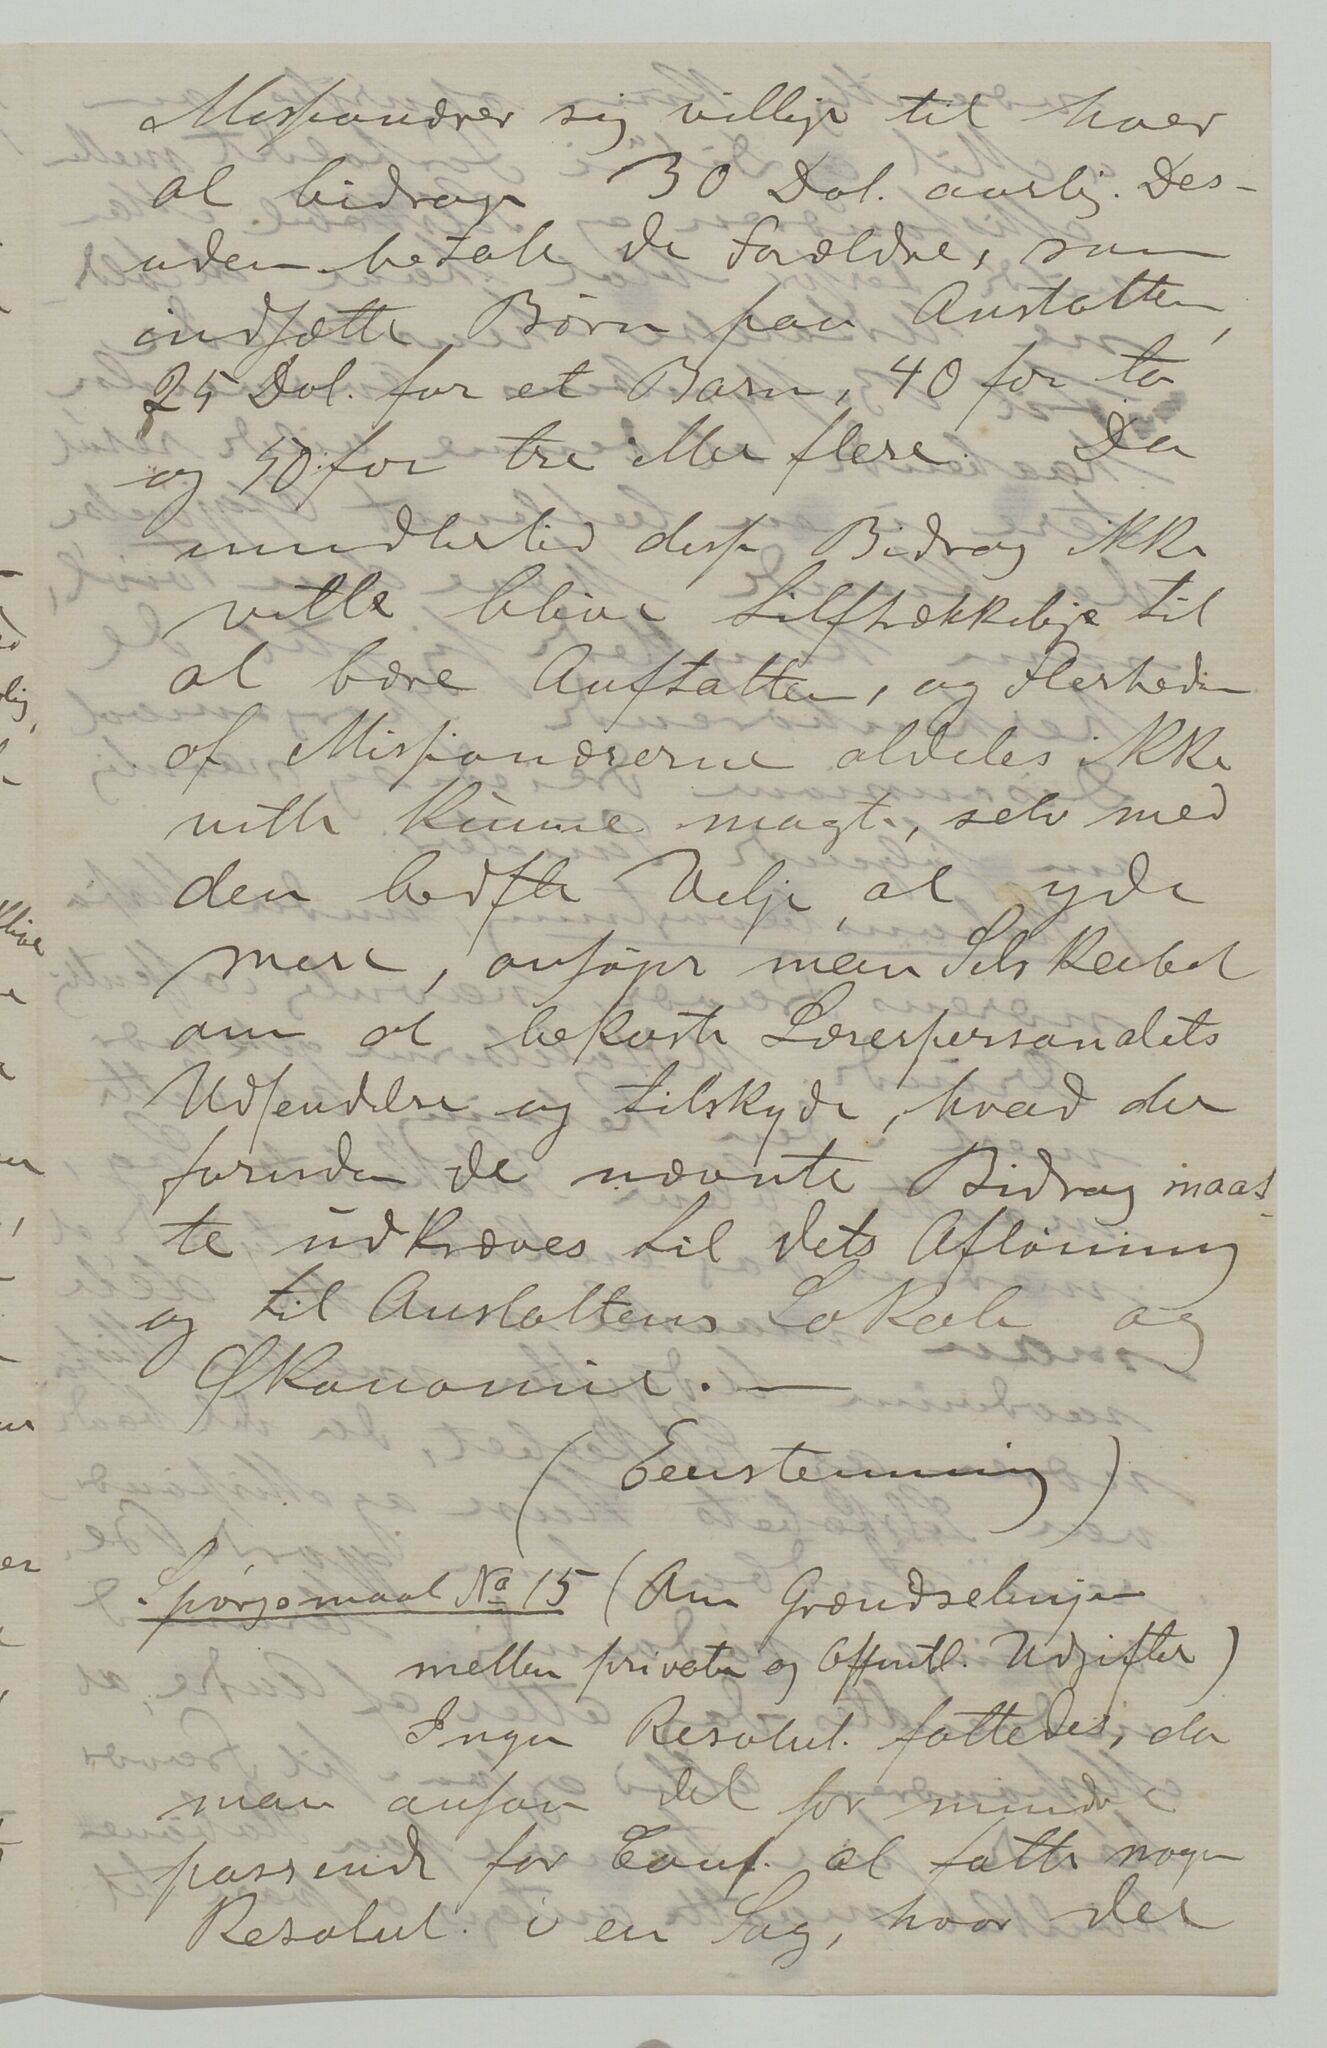 Missionærer sig villige til hver
at bidrage 30 Dol. aarlig. Des-
uden betale de Forældre, som
indsætte Børn paa Anstalten,
25 Dol. for et Barn, 40 for to
og 50 for tre eller flere. Da
imidlertid disse Bidrag ikke
ville blive tilstrækkelige til
at bære Anstalten, og Flerheden
af Missionærerne aldeles ikke
ville kunne magte, selv med
den bedste Vilje, at yde
mere, ansøger man Selskabet
om at bekoste Lærerpersonalets
Udsendelse og tilskyde, hvad der
foruden de nævnte Bidrag maat-
te udkræves til dets Aflønning
og til Anstaltens Lokale og
Økonomie. —
(Eenstemmig)
Spørgsmaal No 15 (Om Grændselinjen
mellem private og offentl. Udgifter)
Ingen Resolut. fattedes, da
man ansaa det for mindre
passende for Conf. at fatte nogen
Resolut. i en Sag, hvor det